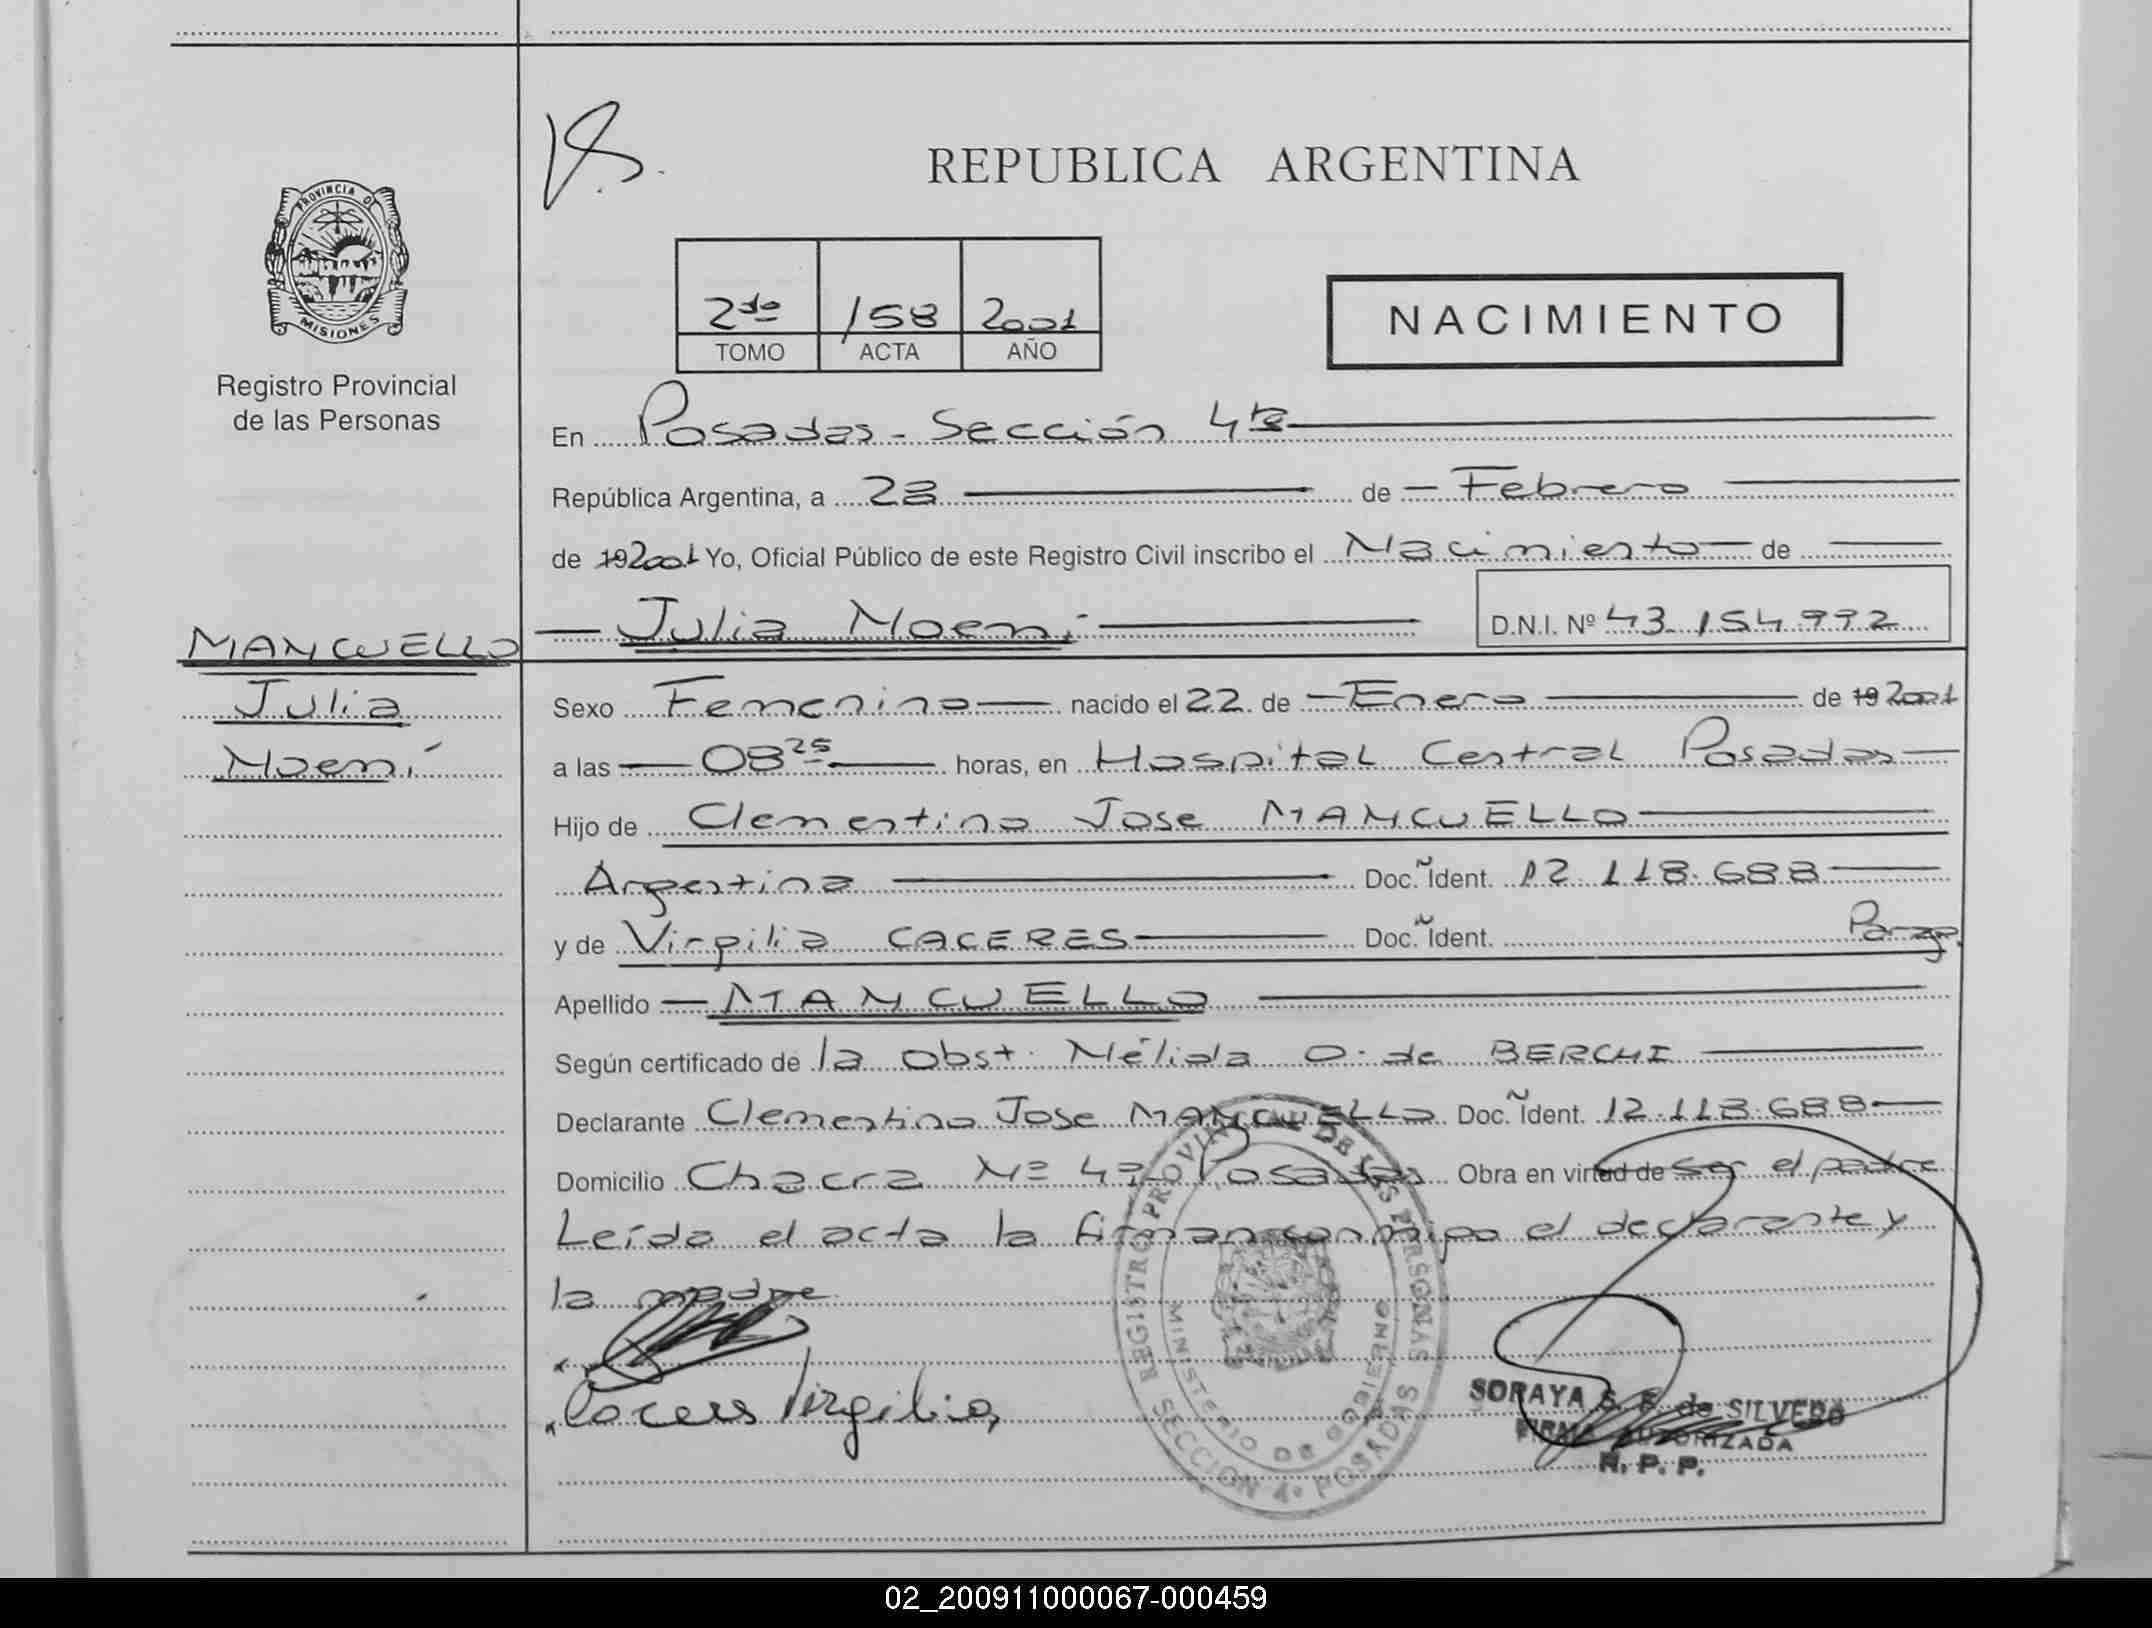 REPUBLICA ARGENTINA
PROVINCIA D
MISIONES
Registro Provincial
de las Personas
2do 158 2001
TOMO ACTA AÑO
NACIMIENTO
En Posadas - Sección 4ta
República Argentina, a 28 de Febrero
de 192001 Yo, Oficial Público de este Registro Civil inscribo el Nacimiento de
Julia Noemí D.N.I. Nº 43.154.992
MANCUELLO
Julia
Noemí
Sexo Femenino nacido el 22 de Enero de 19 2001
a las 08 25 horas, en Hospital Central Posadas
Hijo de Clementino Jose MANCUELLO
Argentina Doc. Ident. 12.118.688
y de Virgilia CACERES Doc. Ident.
Apellido MANCUELLO
Según certificado de la obst. Nélida O. de BERCHI
Declarante Clementino Jose MANCUELLO Doc. Ident. 12.118.688
Domicilio Chacra Nº Posadas Obra en virtud de ser el padre
Leída el acta la firman conmigo el declarante y
la madre
Caceres Virgilia
REGISTRO PROVINCIAL DE LAS PERSONAS
MINISTERIO DE GOBIERNO
SECCION 4º POSADAS
SORAYA S. F. de SILVERO
FIRMA AUTORIZADA
R. P. P.
02_200911000067-000459